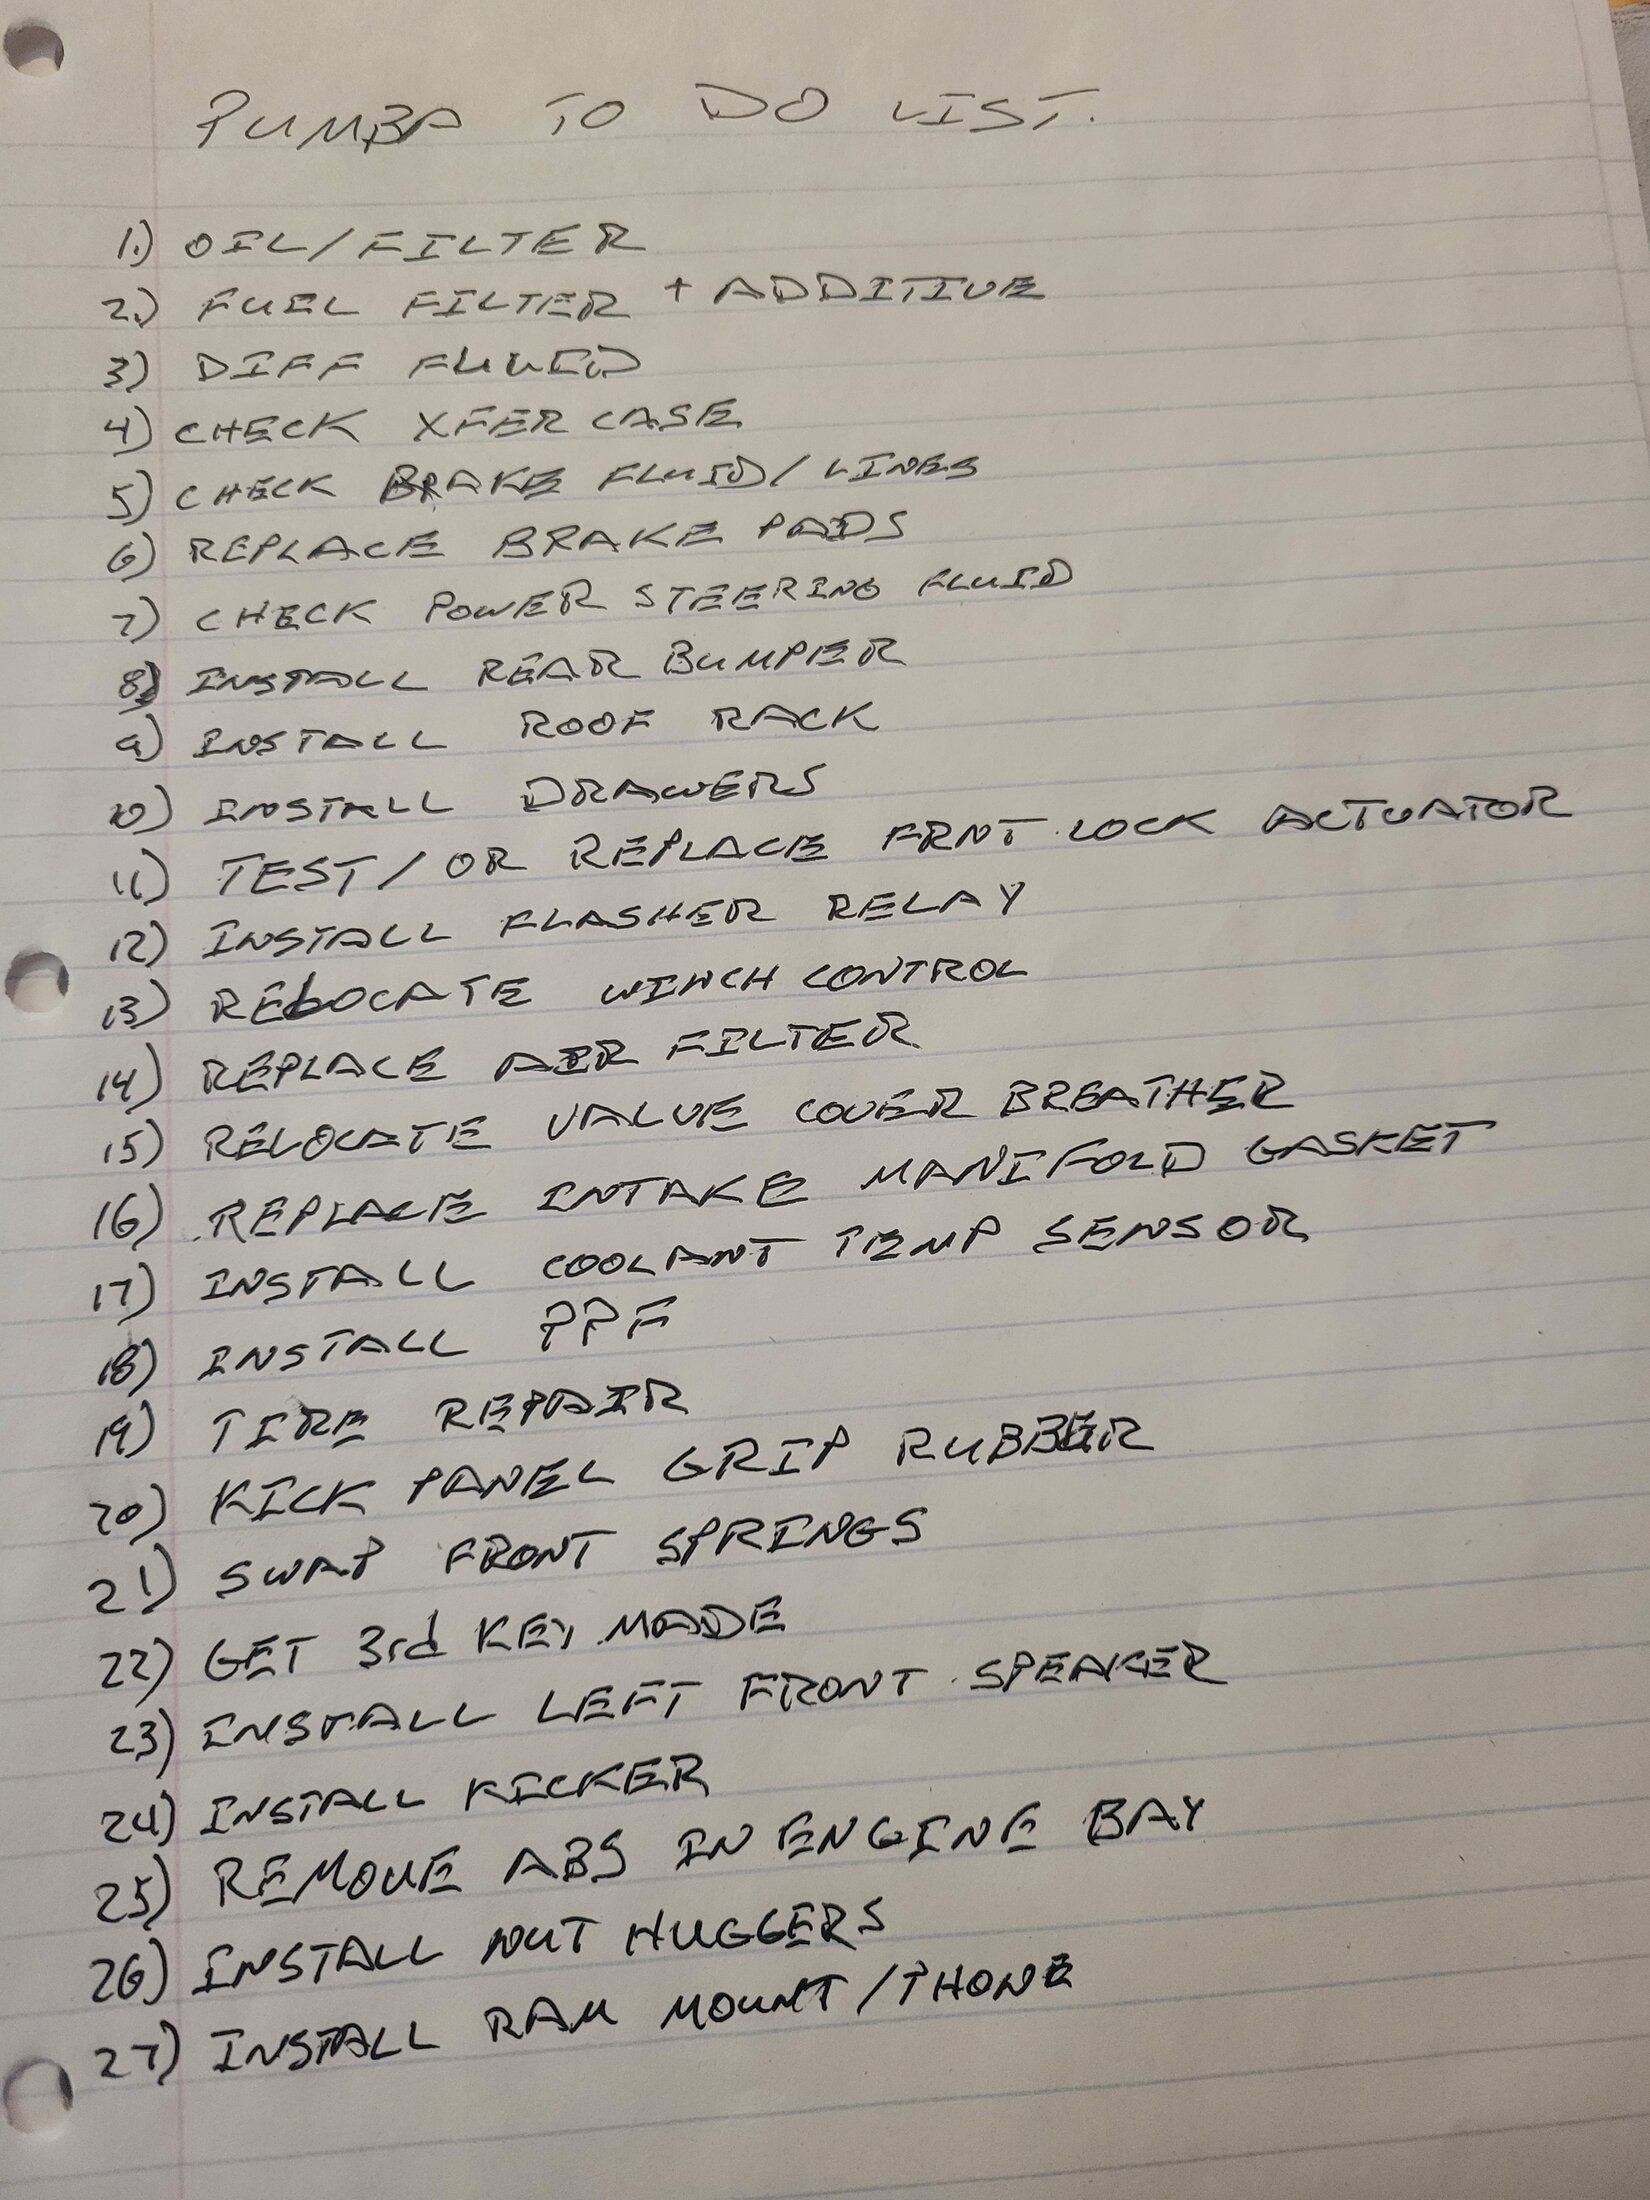 PUMBA TO DO LIST.
1.) OIL/FILTER
2.) FUEL FILTER + ADDITIVE
3) DIFF FLUID
4) CHECK XFER CASE
5) CHECK BRAKE FLUID/LINES
6) REPLACE BRAKE PADS
7) CHECK POWER STEERING FLUID
8) INSTALL REAR BUMPER
9) INSTALL ROOF RACK
10) INSTALL DRAWERS
11) TEST/OR REPLACE FRNT LOCK ACTUATOR
12) INSTALL FLASHER RELAY
13) RELOCATE WINCH CONTROL
14) REPLACE AIR FILTER
15) RELOCATE VALVE COVER BREATHER
16) REPLACE INTAKE MANIFOLD GASKET
17) INSTALL COOLANT TEMP SENSOR
18) INSTALL PPF
19) TIRE REPAIR
20) KICK PANEL GRIP RUBBER
21) SWAP FRONT SPRINGS
22) GET 3rd KEY MADE
23) INSTALL LEFT FRONT SPEAKER
24) INSTALL KICKER
25) REMOVE ABS IN ENGINE BAY
26) INSTALL NUT HUGGERS
27) INSTALL RAM MOUNT/PHONE